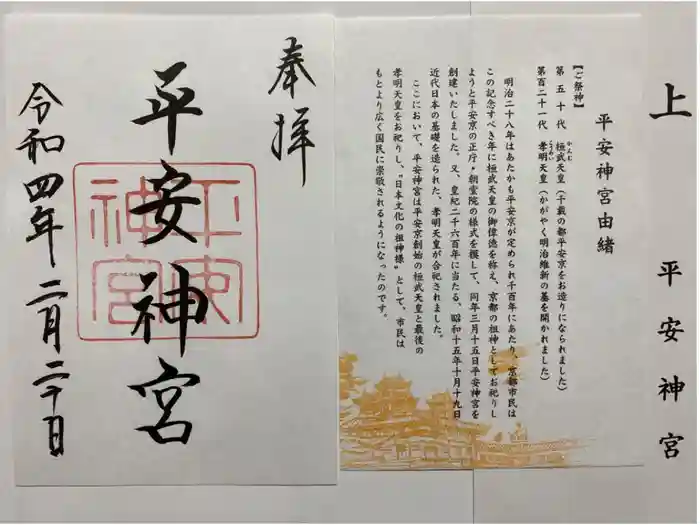 上
平安神宮
平安神宮由緒
【ご祭神】
第五十代 桓武天皇(千載の都平安京をお造りになられました)
かんむ
第百二十一代 孝明天皇(かがやく明治維新の基を開かれました)
こうめい
明治二十八年はあたかも平安京が定められ千百年にあたり、京都市民は
この記念すべき年に桓武天皇の御偉徳を称え、京都の祖神としてお祀りし
ようと平安京の正庁・朝堂院の様式を摸して、同年三月十五日平安神宮を
創建いたしました。又、皇紀二千六百年に当たる、昭和十五年十月十九日
近代日本の基礎を造られた、孝明天皇が合祀されました。
ここにおいて、平安神宮は平安京創始の桓武天皇と最後の
孝明天皇をお祀りし、"日本文化の祖神様"として、市民は
もとより広く国民に崇敬されるようになったのです。
奉拝
平安神宮
平安
神宮
令和四年二月二十日